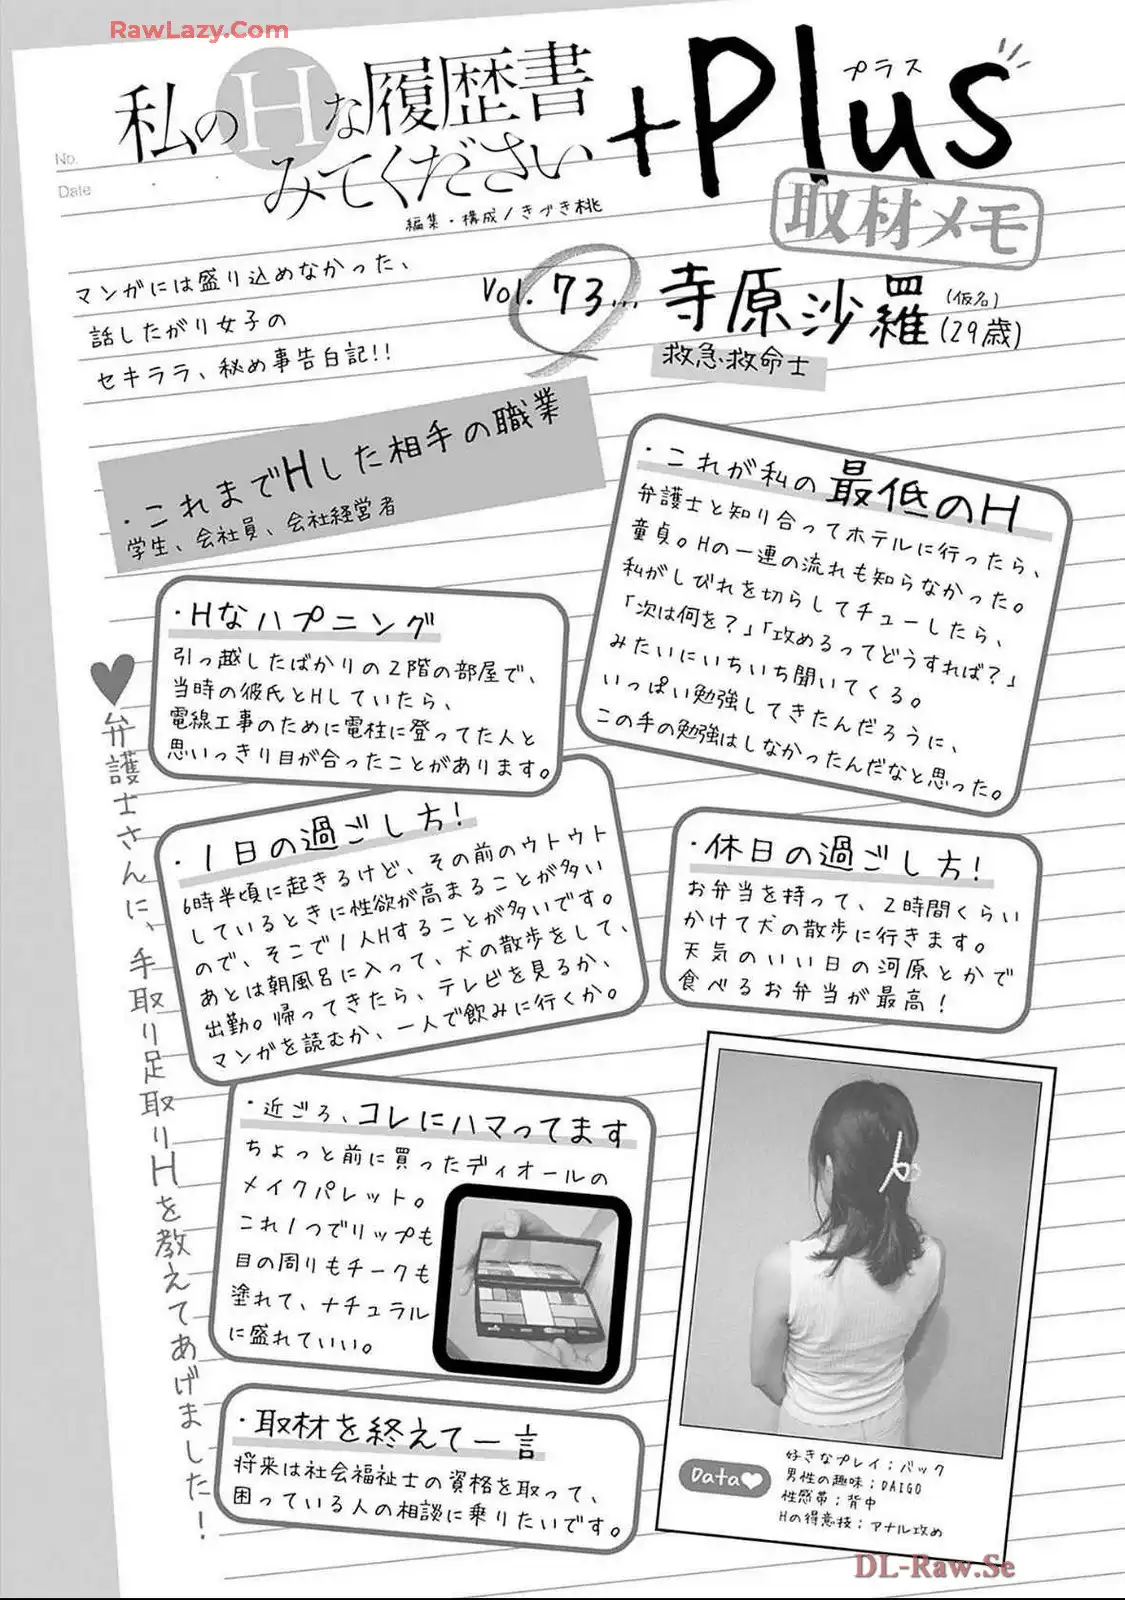 RawLazy.Com
私のHな履歴書
みてください
+Plus
プラス
No.
Date
編集・構成/きづき桃
取材メモ
マンガには盛り込めなかった、
話したがり女子の
セキララ、秘め事告白記!!
Vol.73...
寺原沙羅
(仮名)
(29歳)
救急救命士
・これまでHした相手の職業
学生、会社員、会社経営者
・これが私の最低のH
弁護士と知り合ってホテルに行ったら、
童貞。Hの一連の流れも知らなかった。
私がしびれを切らしてチューしたら、
「次は何を?」「攻めるってどうすれば?」
みたいにいちいち聞いてくる。
いっぱい勉強してきたんだろうに、
この手の勉強はしなかったんだなと思った。
・Hなハプニング
引っ越したばかりの2階の部屋で、
当時の彼氏とHしていたら、
電線工事のために電柱に登ってた人と
思いっきり目が合ったことがあります。
♥弁護士さんに、手取り足取りHを教えてあげました!
・1日の過ごし方!
6時半頃に起きるけど、その前のウトウト
しているときに性欲が高まることが多い
ので、そこで1人Hすることが多いです。
あとは朝風呂に入って、犬の散歩をして、
出勤。帰ってきたら、テレビを見るか、
マンガを読むか、一人で飲みに行くか。
・休日の過ごし方!
お弁当を持って、2時間くらい
かけて犬の散歩に行きます。
天気のいい日の河原とかで
食べるお弁当が最高!
・近ごろ、コレにハマってます
ちょっと前に買ったディオールの
メイクパレット。
これ1つでリップも
目の周りもチークも
塗れて、ナチュラル
に盛れていい。
・取材を終えて一言
将来は社会福祉士の資格を取って、
困っている人の相談に乗りたいです。
Data♥
好きなプレイ:バック
男性の趣味:DAIGO
性感帯:背中
Hの得意技:アナル攻め
DL-Raw.Se